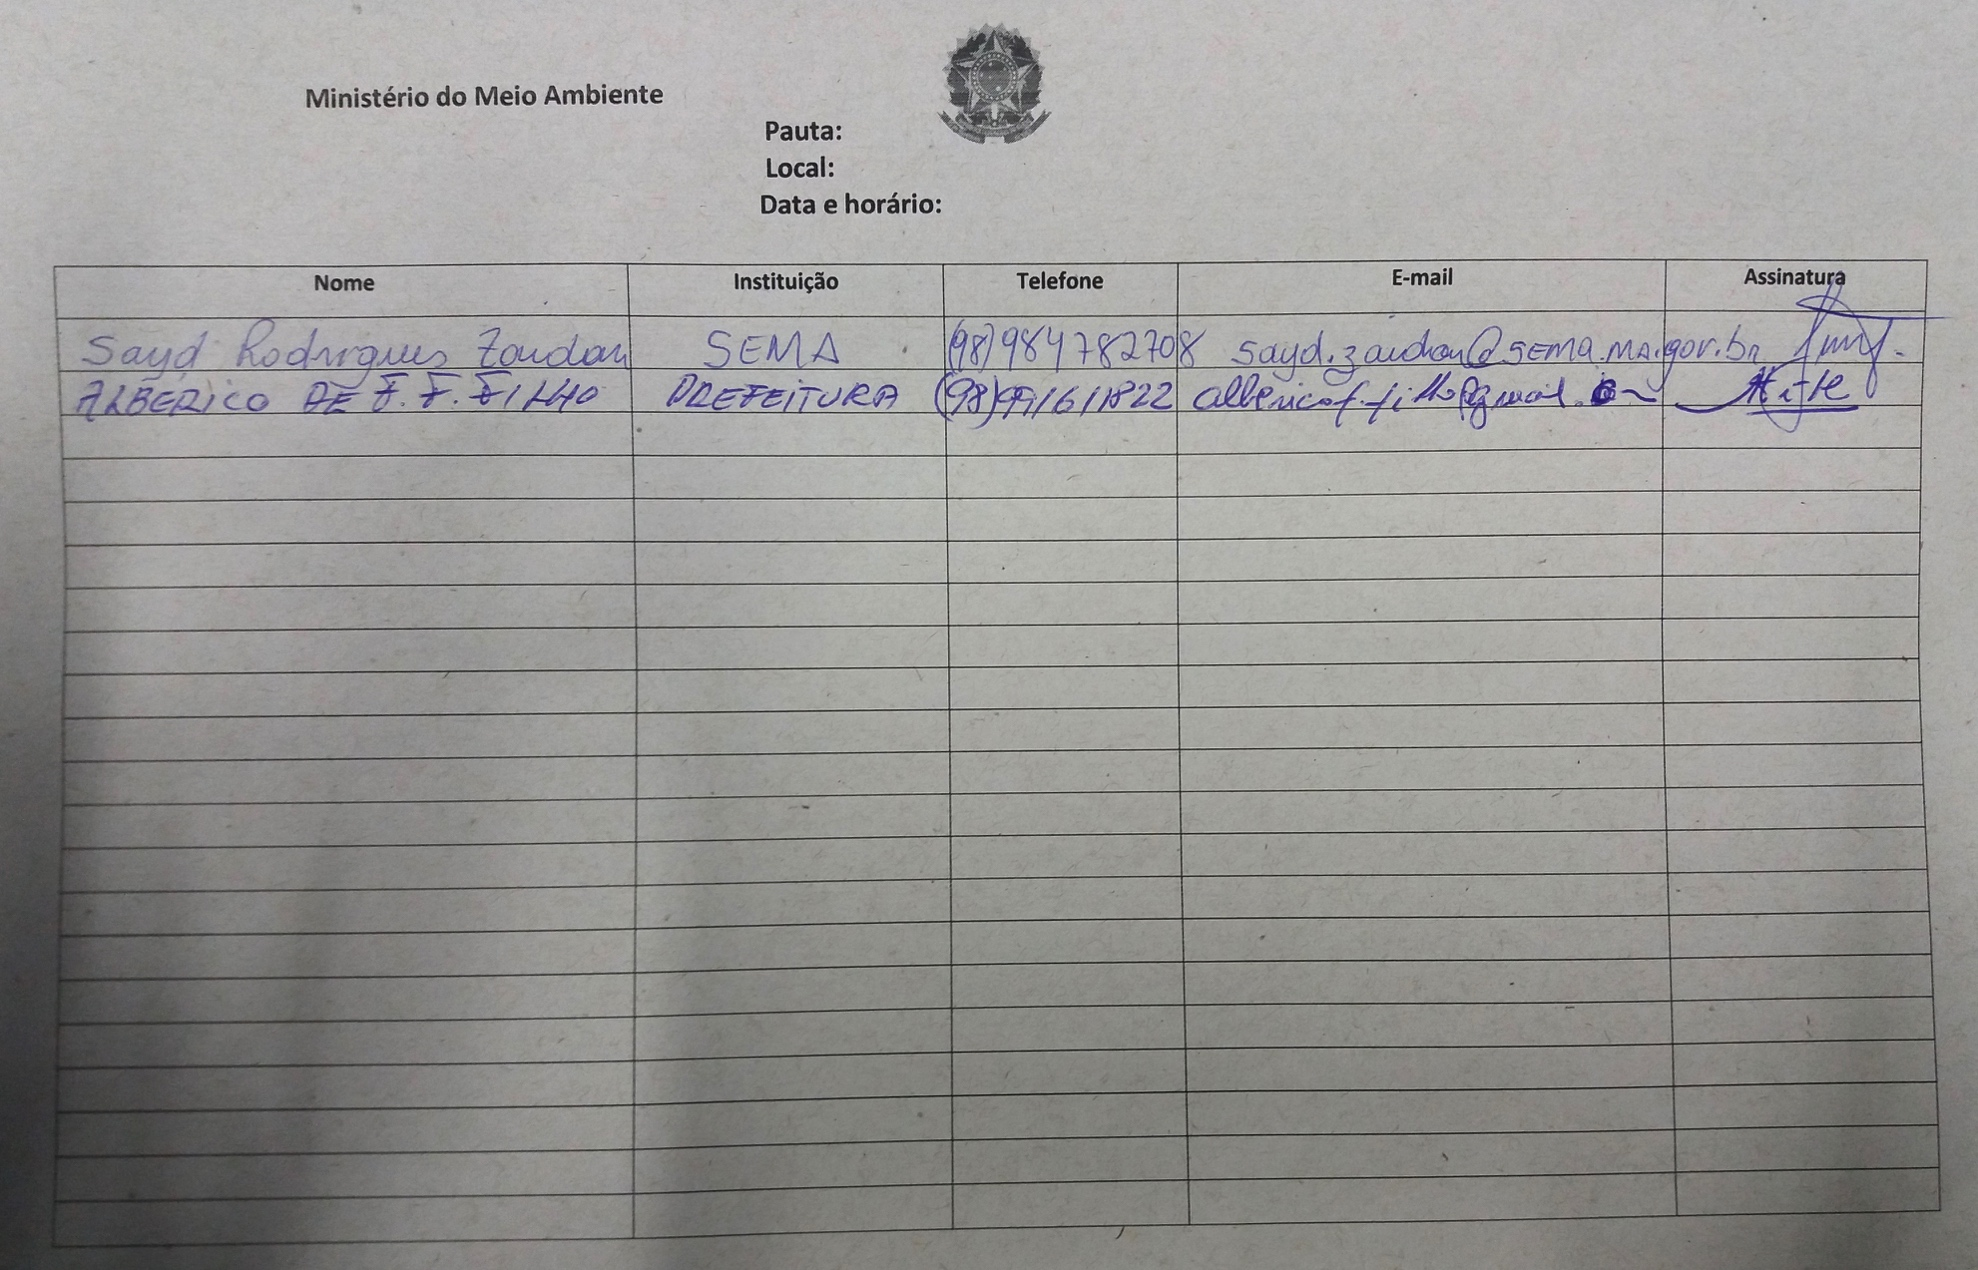 Ministério do Meio Ambiente
Pauta:
Local:
Data e horário:
Nome Instituição Telefone E-mail Assinatura
Sayd Rodrigues Zaidan SEMA (98)984782708 sayd.zaidan@SEMA.MA.gov.br
ALBERICO DE F. F. FILHO PREFEITURA (98)991611822 albericof.filho@gmail.com